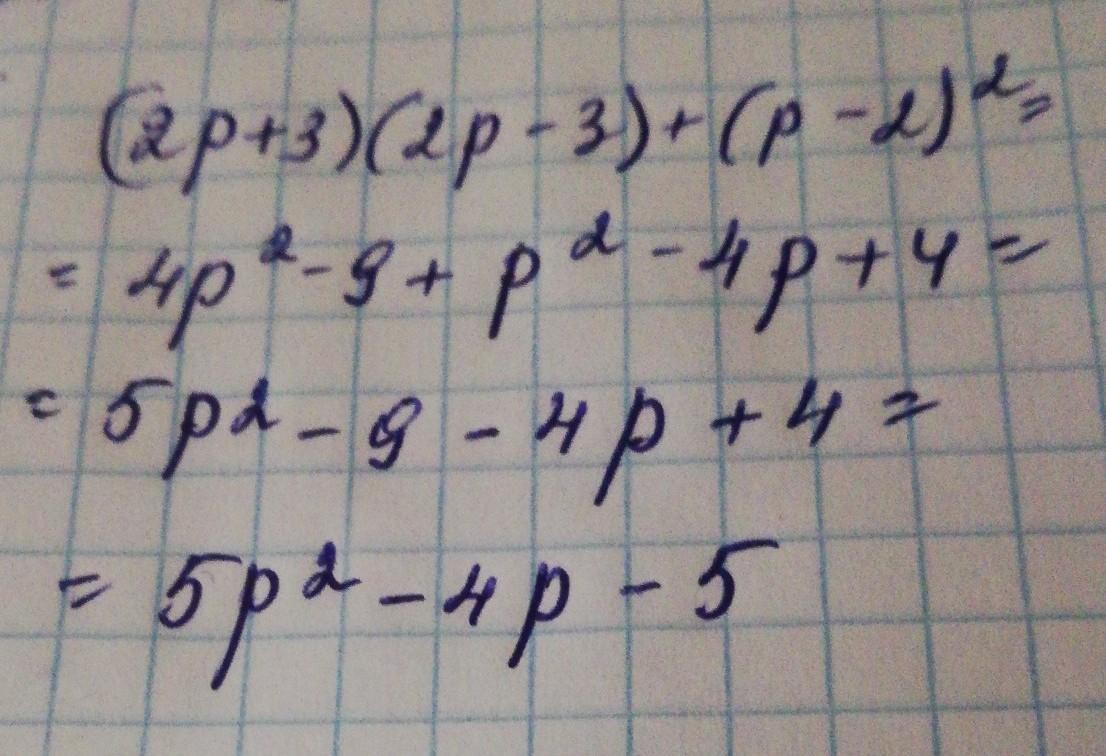 (2p+3)(2p-3)+(p-2)²=
= 4p²-9+p²-4p+4=
= 5p²-9-4p+4=
= 5p²-4p-5